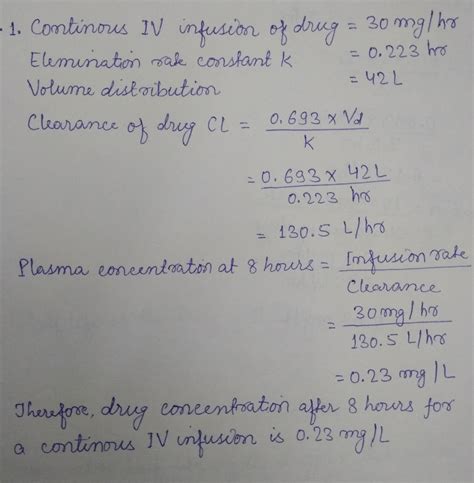 1. Continous IV infusion of drug = 30 mg/hr
Elemination rate constant K = 0.223 hr
Volume distribution = 42L
Clearance of drug CL = 0.693 × Vd
K
= 0.693 × 42L
0.223 hr
= 130.5 L/hr
Plasma concentration at 8 hours = Infusion rate
Clearance
= 30 mg/hr
130.5 L/hr
= 0.23 mg/L
Therefore, drug concentration after 8 hours for
a continous IV infusion is 0.23 mg/L